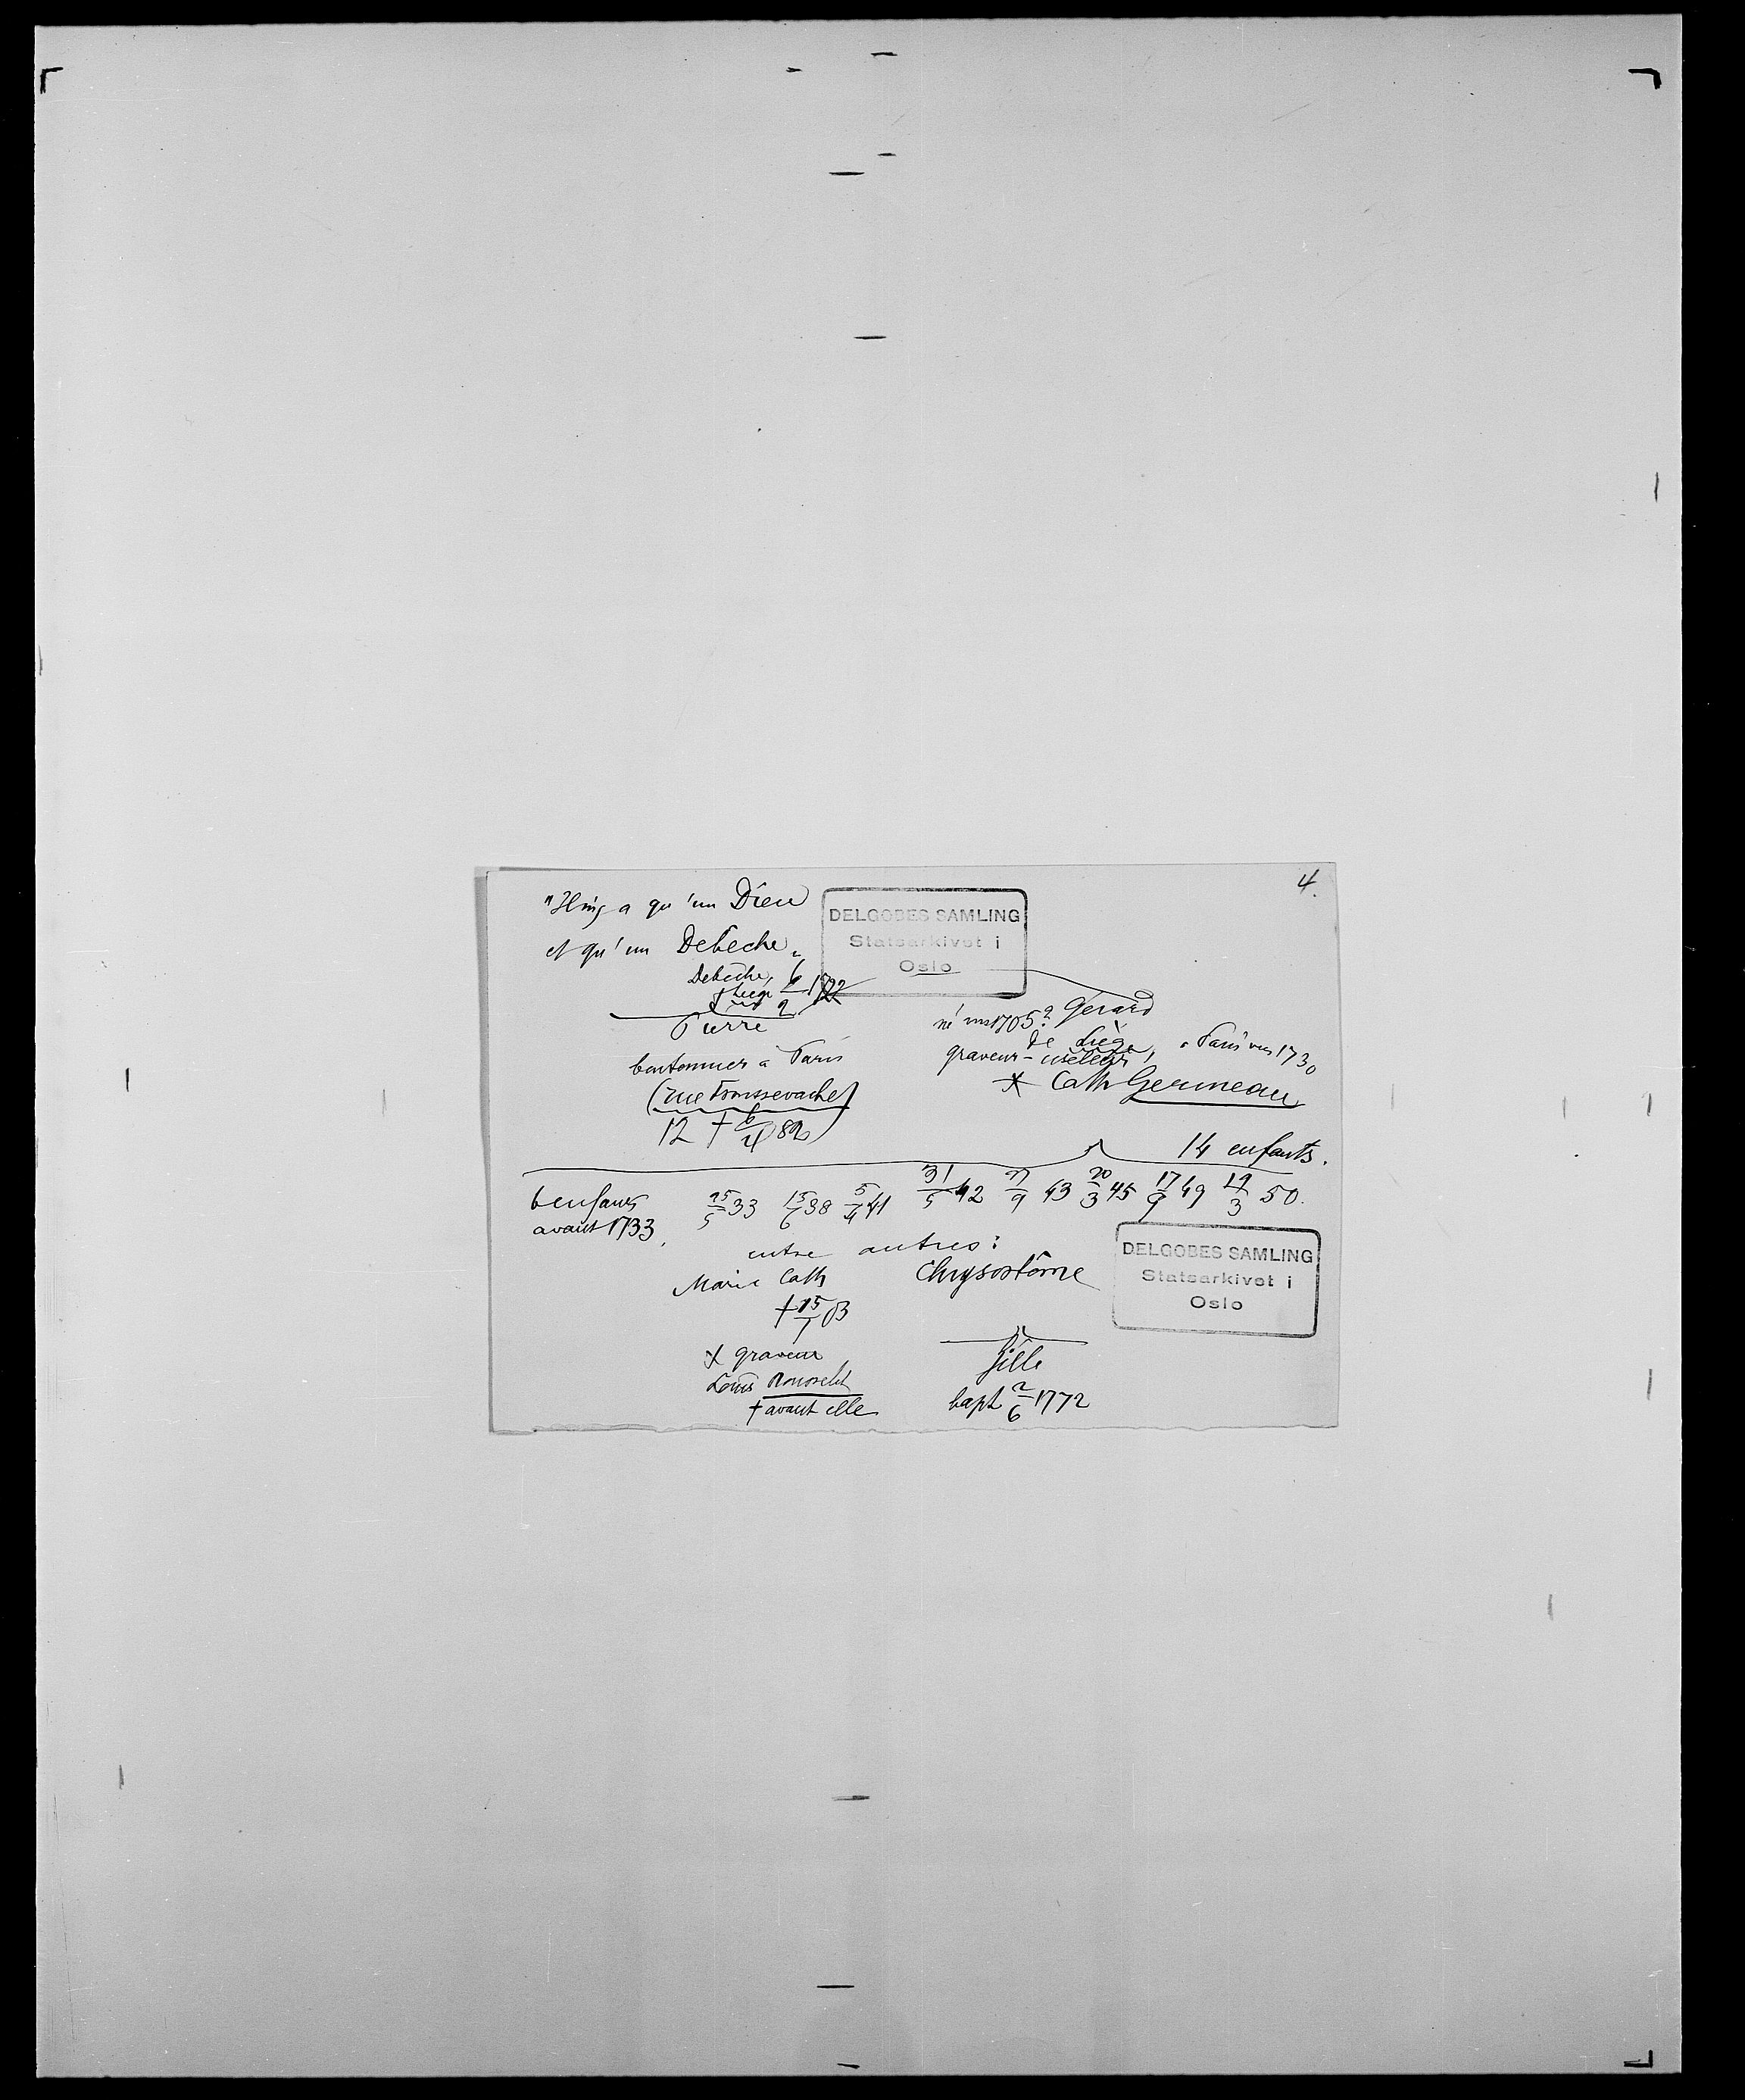 4.
"Il n'y a qu'un Dieu
et qu'un Debèche"
DELGOBES SAMLING
Statsarkivet i
Oslo
Debèche,
Pierre
boutonnier à Paris
(rue Troussevache)
12 †
Gérard
né vers 1705?
de Liège, à Paris vers 1730
graveur-ciseleur,
x Cath Germeau
14 enfants.
6 enfants
avant 1733.
25/5 33 15/6 38 5/4 41 31/5 42 27/9 43 20/3 45 17/9 49 19/3 50.
entre autres:
Marie Cath
† 15/1 03
x graveur
Louis
† avant elle
Chrysostôme
fille
bapt 2/6 1772
DELGOBES SAMLING
Statsarkivet i
Oslo